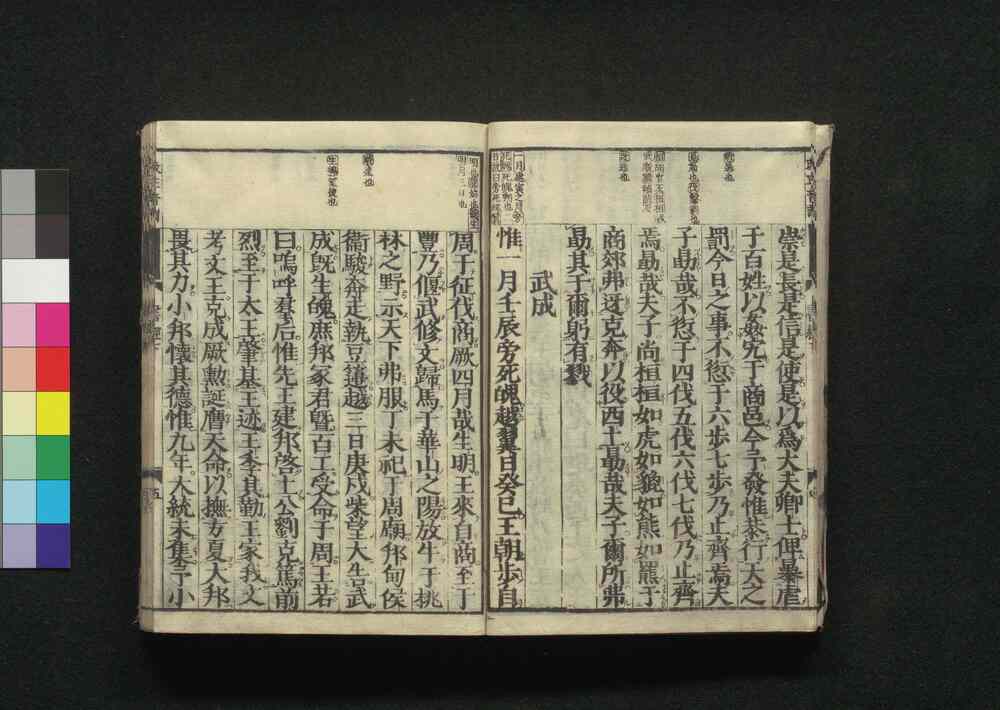 崇是長是信是使是以爲大夫卿士俾暴虐
于百姓以姦宄于商邑今予發惟恭行天之
罰今日之事不愆于六步七步乃止齊焉夫
子勗哉不愆于四伐五伐六伐七伐乃止齊
焉勗哉夫子尚桓桓如虎如貔如熊如羆于
商郊弗迓克奔以役西土勗哉夫子爾所弗
勗其于爾躬有戮
武成
惟一月壬辰旁死魄越翼日癸巳王朝步自
周于征伐商厥四月哉生明王來自商至于
豐乃偃武修文歸馬于華山之陽放牛于桃
林之野示天下弗服丁未祀于周廟邦甸侯
衞駿奔走執豆籩越三日庚戌柴望大告武
成旣生魄庶邦冢君曁百工受命于周王若
曰嗚呼羣后惟先王建邦啓土公劉克篤前
烈至于太王肇基王迹王季其勤王家我文
考文王克成厥勳誕膺天命以撫方夏大邦
畏其力小邦懷其德惟九年大統未集予小
五